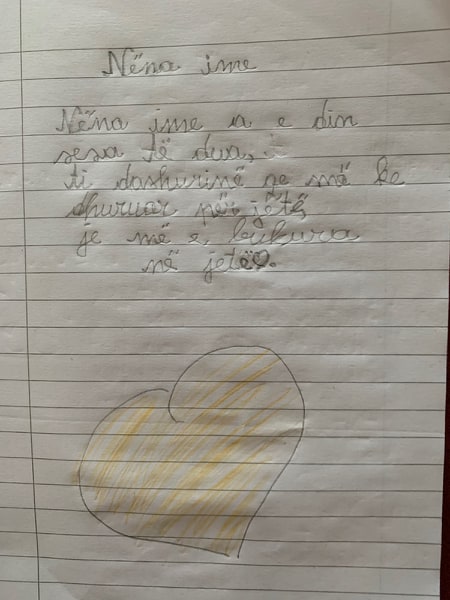 Nëna ime
Nëna ime a e din
sesa të dua,
ti dashurinë qe më ke
dhuruar për jëtë
je më e bukura
në jetë.